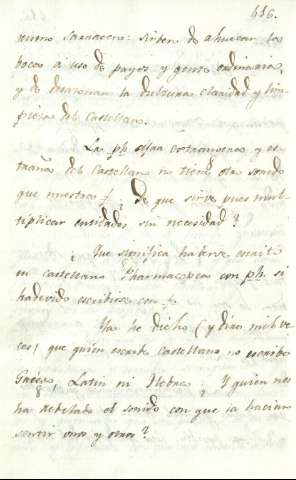 616.
sirben de ahuecar la
boca a uso de payos y gente ordinaria,
y de desazonar la dulzura claridad y lim
pieza del Castellano.
La ph essa extranxera y es-
traña del Castellano no tiene otro sonido
que nuestra f. ¿De que sirve pues mul-
tiplicar entidades sin necesidad?
¿Que significa haberse escrito
en castellano Pharmacopea con ph. si
hadevido escribirse con f.
Ya he dicho (y diré mil ve
ces) que quien escribe Castellano no escribe
Griego, Latin ni Hebreo; Y quién nos
ha revelado el sonido con que la hacian
sentir unos y otros?